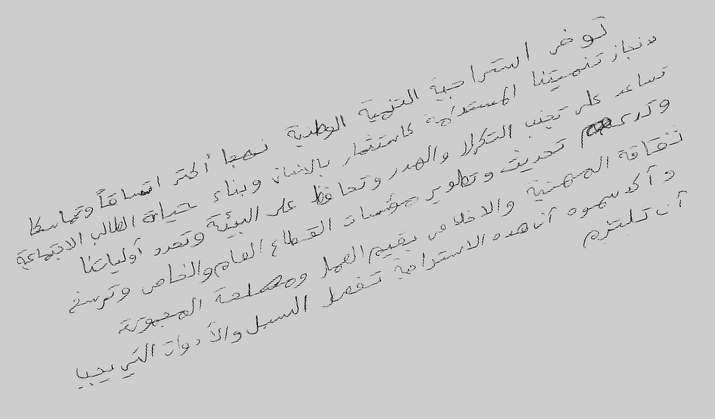 توفر استراتيجية التنمية الوطنية نهجا أكثر اتساقاً وتماسكا
لانجاز تنميتنا المستدامة كاستثمار بالانسان وبناء حياة الطالب الاجتماعية
تساعد على تجنب التكرار والهدر وتحافظ على البيئة وتحدد أولياتنا
وتدعم تحديث وتطوير مؤسسات القطاع العام والخاص وترسخ
ثقافة المهنية والاخلاص بقيم العمل ومصلحة
و أكد سموه أن هذه الاستراتيجية تفصل السبل والأدوات التي يجب
أن تلتزم